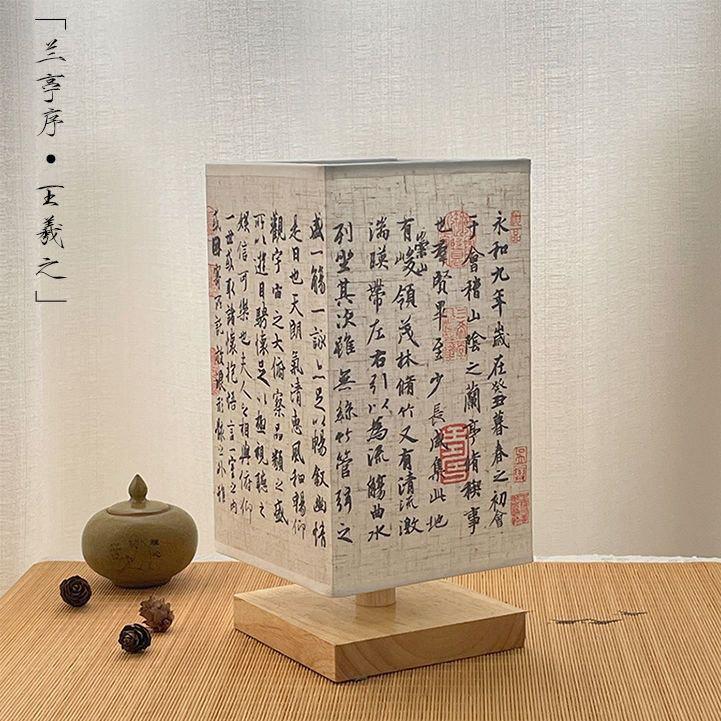 「兰亭序•王羲之」
永和九年歲在癸丑暮春之初會
于會稽山陰之蘭亭脩禊事
也羣賢畢至少長咸集此地
有崇山峻領茂林脩竹又有清流激
湍暎帶左右引以為流觴曲水
列坐其次雖無絲竹管弦之
盛一觴一詠亦足以暢敘幽情
是日也天朗氣清惠風和暢仰
觀宇宙之大俯察品類之盛
所以遊目騁懷足以極視聽之
娛信可樂也夫人之相與俯仰
一世或取諸懷抱悟言一室之內
或因寄所託放浪形骸之外雖